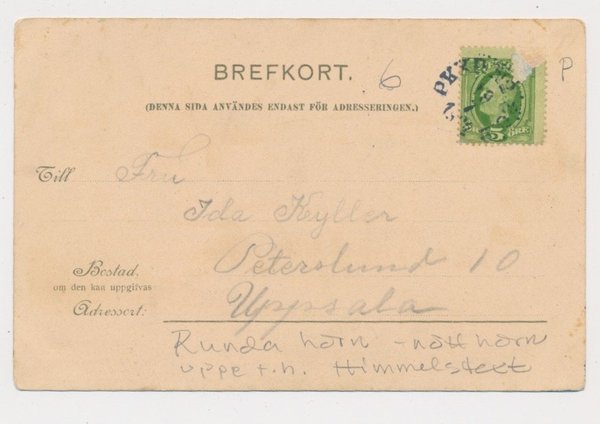 BREFKORT. 6
P
(DENNA SIDA ANVÄNDES ENDAST FÖR ADRESSERINGEN.)
PKXP
5 ÖRE
Till Fru
Ida Kyller
Bostad, Peterslund 10
om den kan uppgifvas
Uppsala
Adressort:
Runda hörn - nött hörn
uppe t.h. Himmelsteet